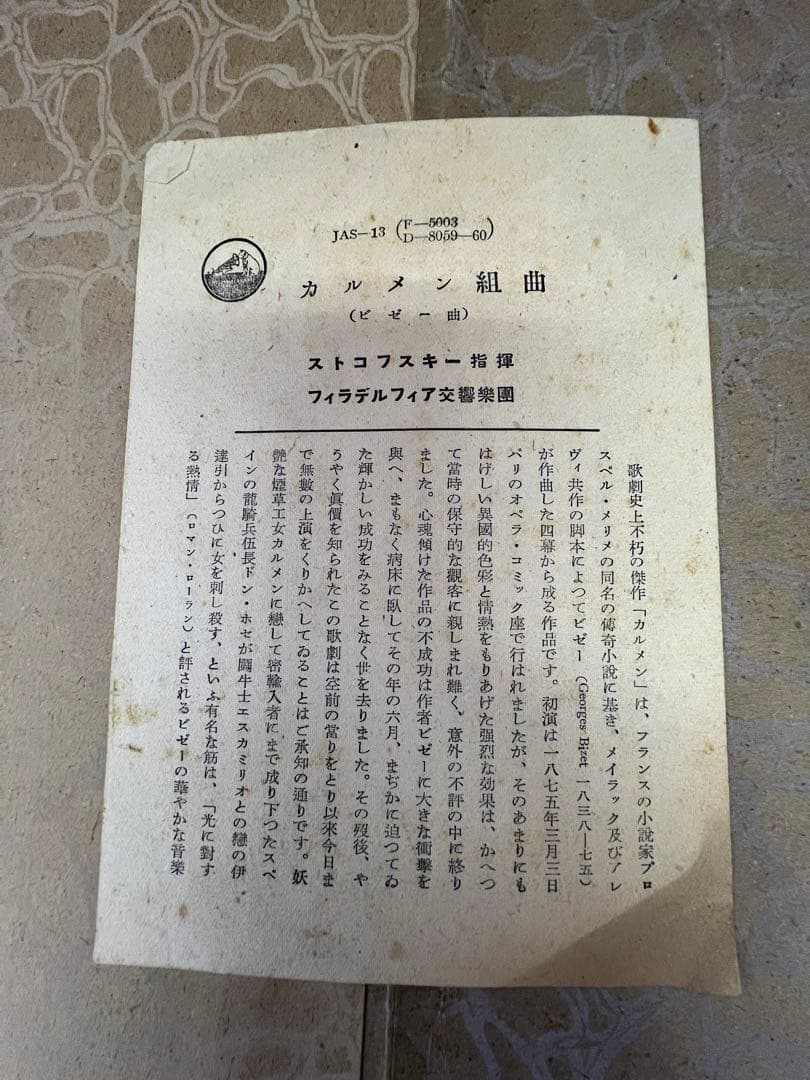 JAS—13 (F—5003 D—8059—60)
カルメン組曲
(ビゼー曲)
ストコフスキー指揮
フィラデルフィア交響樂團
歌劇史上不朽の傑作「カルメン」は、フランスの小說家プロ
スペル・メリメの同名の傳奇小說に基き、メイラック及びアレ
ヴィ共作の脚本によつてビゼー (Georges Bizet 一八三八—七五)
が作曲した四幕から成る作品です。初演は一八七五年三月三日
パリのオペラ・コミック座で行はれましたが、そのあまりにも
はげしい異國的色彩と情熱をもりあげた强烈な効果は、かへつ
て當時の保守的な觀客に親しまれ難く、意外の不評の中に終り
ました。心魂傾けた作品の不成功は作者ビゼーに大きな衝擊を
與へ、まもなく病床に臥してその年の六月、まぢかに迫つてゐ
た輝かしい成功をみることなく世を去りました。その歿後、や
うやく眞價を知られたこの歌劇は空前の當りをとり以來今日ま
で無數の上演をくりかへしてゐることはご承知の通りです。妖
艷な煙草工女カルメンに戀して密輸入者にまで成り下つたスペ
インの龍騎兵伍長ドン・ホセが鬪牛士エスカミリオとの戀の伊
達引からつひに女を刺し殺す、といふ有名な筋は、「光に對す
る熱情」(ロマン・ローラン)と評されるビゼーの華やかな音樂